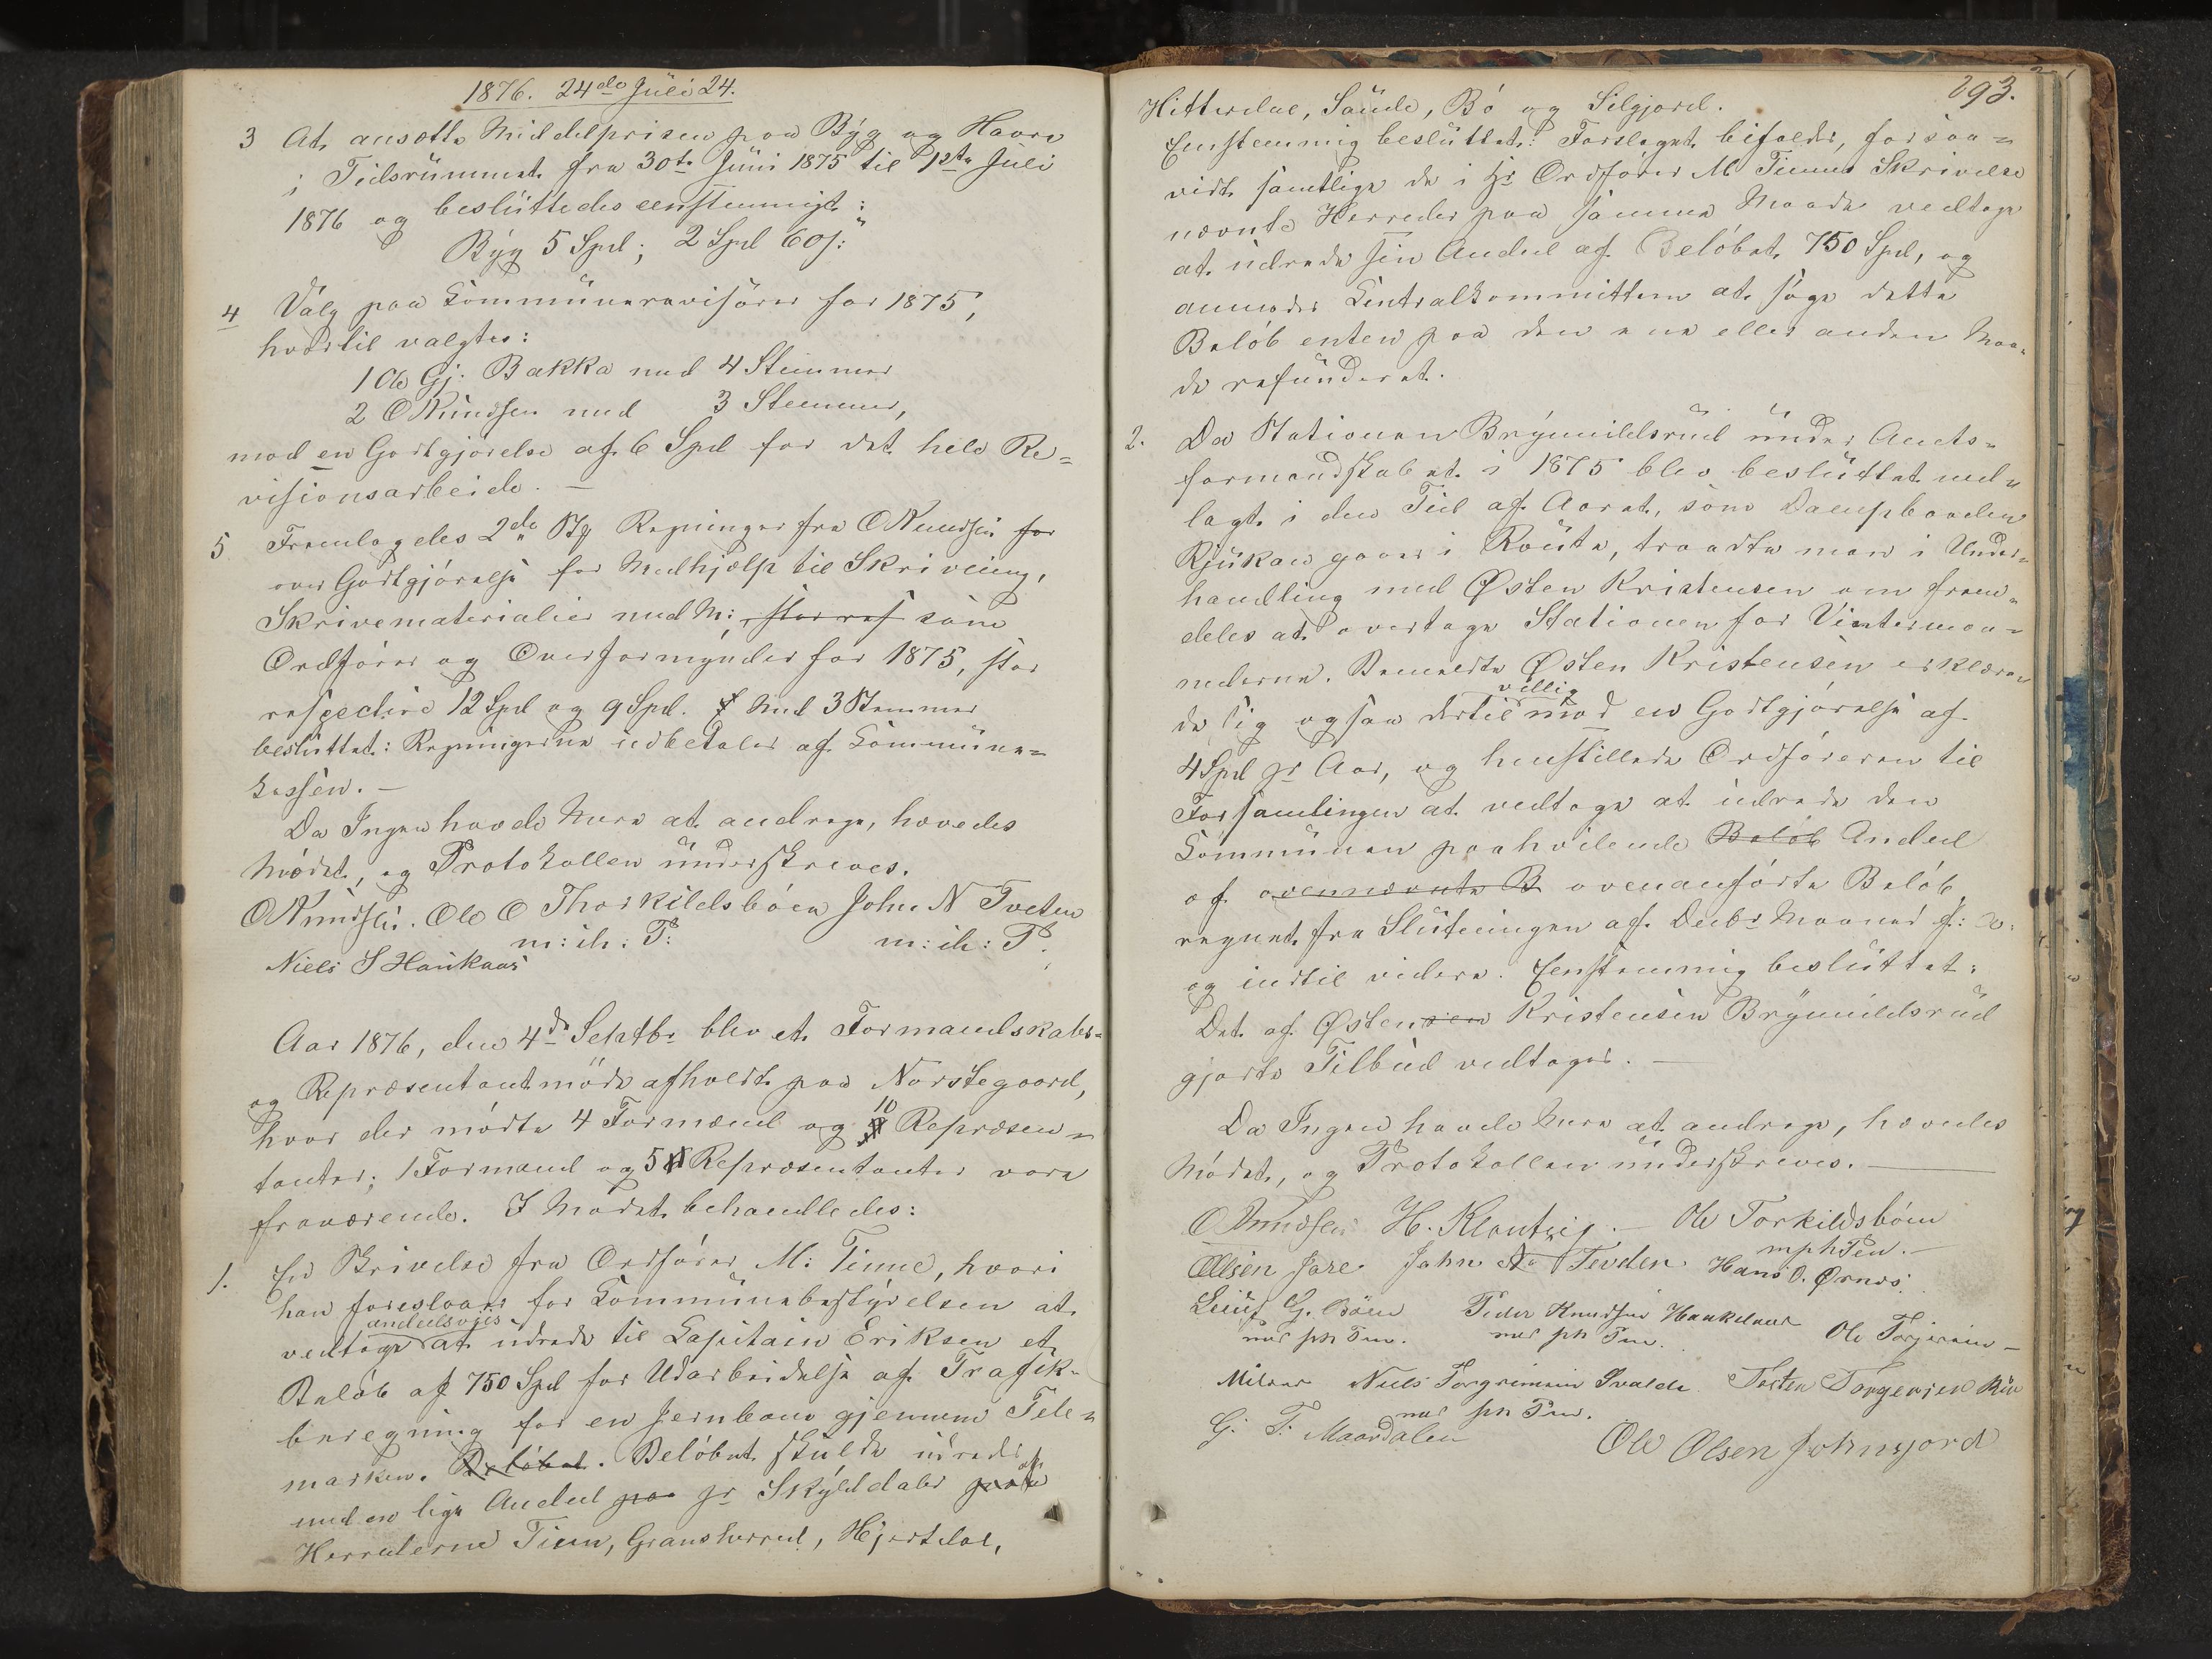 1876. 24de Juli 24.
3 At ansætte Middelprisen paa Byg og Havre
i Tidsrummet fra 30te Juni 1875 til 1ste Juli
1876 og besluttedes eenstemmigt:
Byg 5 Spd; 2 Spd 60 s:
4 Valg paa Kommunerevisorer for 1875,
hvortil valgtes:
1 Ole Gj. Bakka med 4 Stemmer
2 O Knudsen med 3 Stemmer,
mod en Godtgjørelse af 6 Spd for det hele Re=
visionsarbeide. —
5 Fremlagdes 2de Stk Regninger fra O Knudsen for
over Godtgjørelse for Medhjælp til Skrivning,
Skrivematerialier med M: stor res som
Ordfører og Overformynder for 1875, stor
respective 12 Spd og 9 Spd. Med 3 Stemmer
besluttet: Regningerne udbetales af Kommune=
kassen. —
Da Ingen havde Mere at andrage, hævedes
Mødet, og Protokollen underskreves.
O Knudsen. Ole O Thorkildsbøen John N Tveten
m: ih: P: m: ih: P.
Niels S Haukaas
Aar 1876, den 4de Septbr blev et Formandskabs=
og Repræsentantmøde afholdt paa Norstegaard,
hvor der mødte 4 Formænd og 10 Repræsen=
tanter; 1 Formand og 5 Repræsentanter vare
fraværende. I Mødet behandledes:
1. En Skrivelse fra Ordfører M: Tinne, hvori
han foreslaaer for Kommunebestyrelsen at
andeelsviis
vedtage at udrede til Kapitain Eriksen et
Beløb af 750 Spd for Udarbeidelse af Trafik-
beregning for en Jernbane gjennem Tele=
marken. Beløbet. Beløbet skulde udredes
med en lige Andeel paa pr Skylddaler af
Herrederne Tinn, Gransherred, Hjertdal,
293.
Hitterdal, Saude, Bø og Silgjord.
Eenstemmig besluttet: Forslaget bifaldes, forsaa=
vidt samtlige de i Hr Ordfører M Tinnes Skrivelse
nævnte Herreder paa samme Maade vedtage
at udrede sin Andeel af Beløbet 750 Spd, og
anmodes Centralkommitteen at søge dette
Beløb enten paa den ene eller anden Maa=
de refunderet.
2. Da Stationen Brynnildsrud under Amts=
formandskabet i 1875 blev besluttet ned=
lagt i den Tid af Aaret, som Dampbaaden
Rjukan gaaer i Route, traadte man i Under=
handling med Østen Kristensen om frem=
deles at overtage Stationen for Vintermaa=
nederne. Bemeldte Østen Kristensen erklære=
villig
de sig ogsaa dertil mod en Godtgjørelse af
4 Spd pr Aar, og henstillede Ordføreren til
Forsamlingen at vedtage at udrede den
Kommunen paahvilende Beløb Andeel
af ovennævnte B ovenanførte Beløb,
regnet fra Slutningen af Decbr Maaned f: A:
og indtil videre. Eenstemmig besluttet:
Det af Østensen Kristensen Brynnildsrud
gjorte Tilbud vedtages. —
Da Ingen havde Mere at andrage, hævedes
Mødet, og Protokollen underskreves. —
O Knudsen H. Klontzig. — Ole Torkildsbøen
mphPen. —
O Olsen Jare John N Tveden Hans O. Ørnes.
G. Bøen Peder Knudsen Haukelaas
med ph Pen. med ph Pen. Ole Torjersin —
Milaar Niels Torgrimsen Svalde Torgersen
med ph Pen.
G. T. Maardalen
Ole Olsen Johnsjord